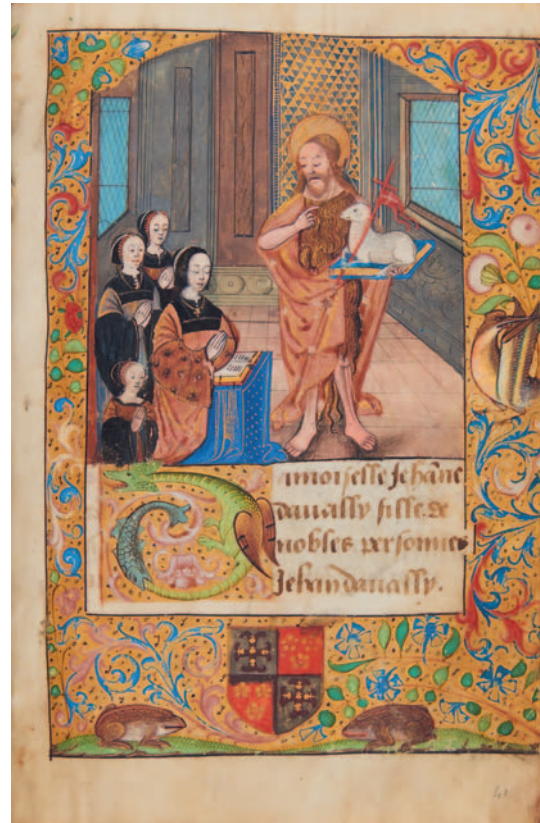 Damoiselle Jehane
dauailly fille de
nobles personnes
Jehan dauailly.